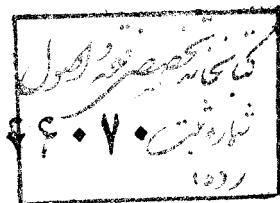 کتابخانه تخصصی فقه و اصول
شماره ثبت ۴۴۰۷۰
رده: